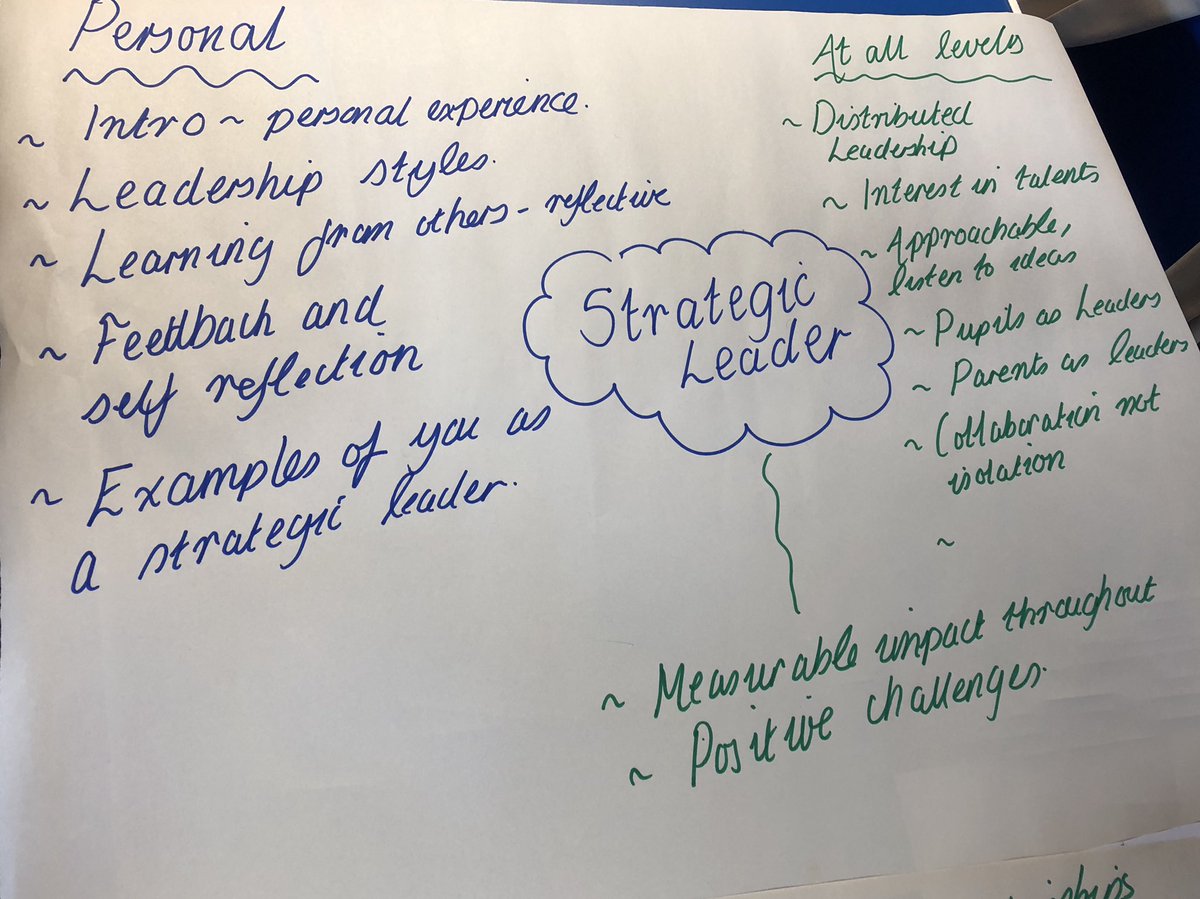 Personal
~ Intro ~ personal experience.
~ Leadership styles.
~ Learning from others - reflective
~ Feedback and
self reflection
~ Examples of you as
a strategic leader.
Strategic
Leader
At all levels
~ Distributed
Leadership
~ Interest in talents
~ Approachable,
listen to ideas
~ Pupils as Leaders
~ Parents as leaders
~ Collaboration not
isolation
~
~ Measurable impact throughout
~ Positive challenges.